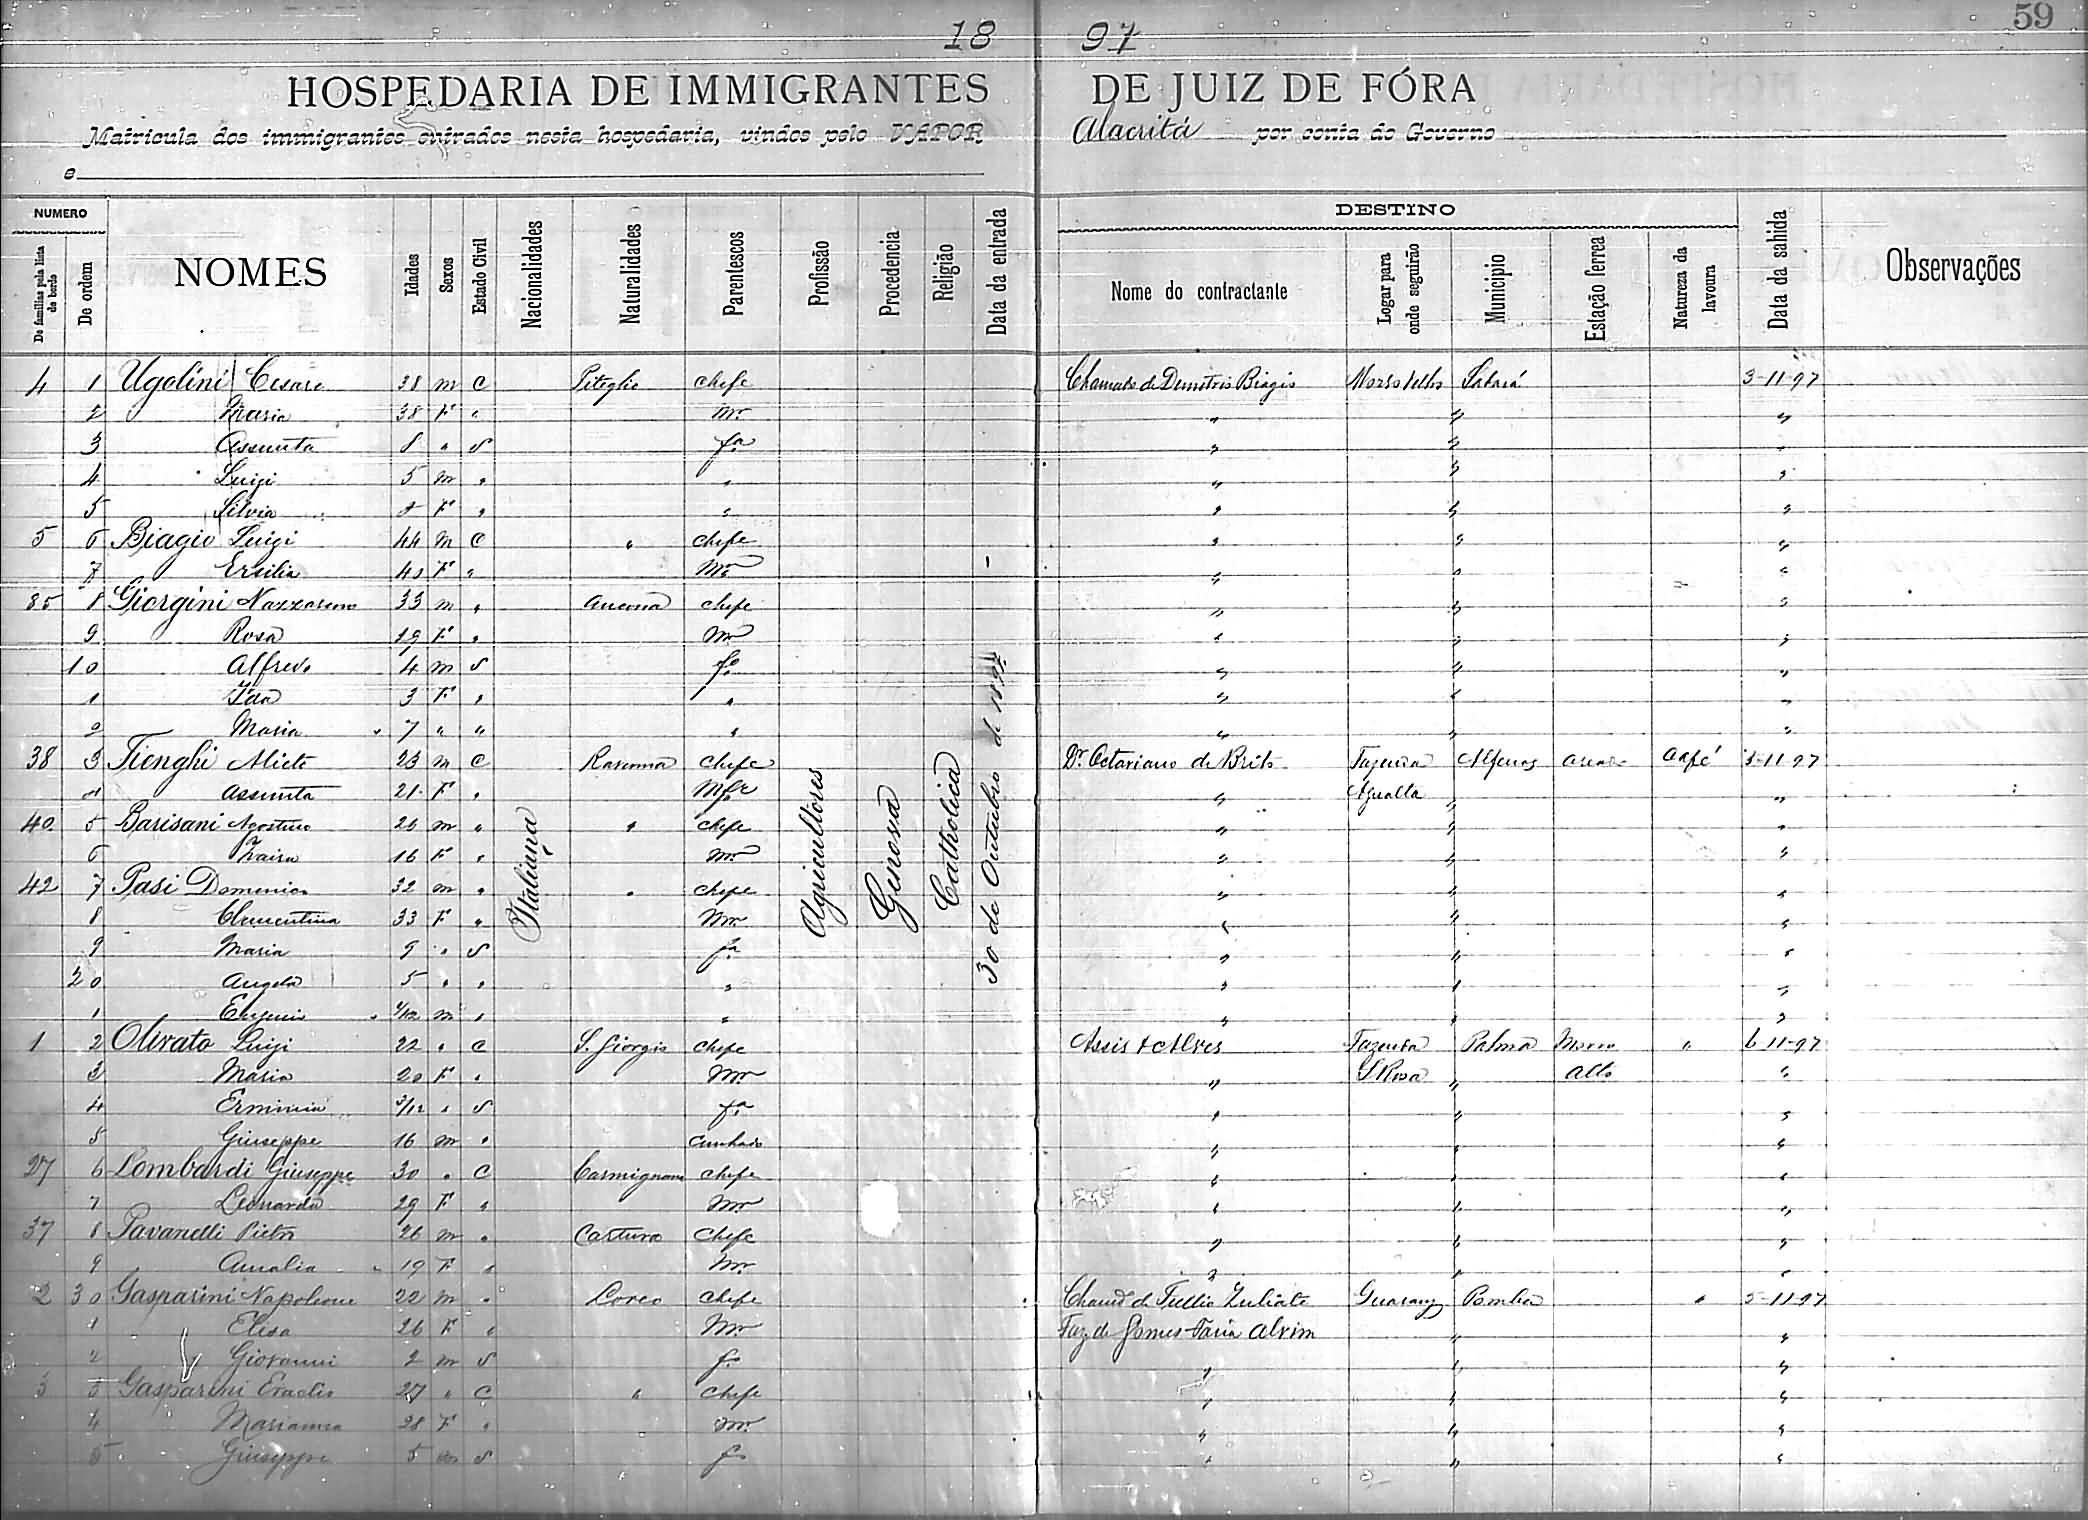 59
18 97
HOSPEDARIA DE IMMIGRANTES DE JUIZ DE FÓRA
Matricula dos immigrantes entrados nesta hospedaria, vindos pelo VAPOR Alacritá por conta do Governo
e
NUMERO DESTINO
De familias pela lista de bordo De ordem NOMES Idades Sexos Estado Civil Nacionalidades Naturalidades Parentescos Profissão Procedencia Religião Data da entrada Nome do contractante Logar para onde seguirão Municipio Estação ferrea Natureza da lavoura Data da sahida Observações
Italiana Agricultores Genova Catholica 30 de Outubro de 1897
4 1 Ugolini Cesare 38 m C Piteglio Chefe Chamado de Demetrio Biagio Morro Velho Sabará 3-11-97
2 Maria 38 F " mr " " "
3 Assunta 8 " S fa " " "
4 Luigi 5 m " " " " "
5 Silvia F " " " " "
5 6 Biagio Luigi 44 m C " Chefe " " "
7 Ersilia 40 F " Mr " " "
35 8 Giorgini Nazzareno 33 m " Ancona Chefe " " "
9 Rosa 19 F " Mr " " "
10 Alfredo 4 m S fo " " "
1 Ida 3 F " " " " "
2 Maria 7 " " " " " "
38 3 Fienghi Aliete 23 m C Ravenna Chefe Dr. Octaviano de Brito Fazenda Alfenas Café 3-11-97
4 Assunta 21 F " Mer " " "
40 5 Barisani Agostino 26 m " " Chefe " " "
6 Zaira 16 F " mr " " "
42 7 Pasi Domenico 32 m " " Chefe " " "
8 Clementina 33 F " Mr " " "
9 Maria 9 " S fa " " "
20 Angela 5 " " " " " "
1 Eugenio /12 m " " " " "
1 2 Olivato Luigi 22 " C S. Giorgio Chefe Assis & Alves Fazenda Palma Morro " 6-11-97
3 Maria 20 F " Mr " S Rosa " Alto "
4 Erminia 3/12 " S fa " " "
5 Giuseppe 16 m " Cunhado " " "
27 6 Lombardi Giuseppe 30 " C Carmignano Chefe " " "
7 Leonarda 29 F " Mr " " "
37 8 Pavanelli Pietro 26 m " Carturo Chefe " " "
9 Amalia 19 F " Mr " " "
2 30 Gasparini Napoleone 22 m " Loreo Chefe Chamd de Tullio Zuliate Guarany Pomba " 5-11-97
1 Elisa 26 F " Mr Faz. de Gomes Faria Alvim " "
2 Giovanni 2 m S fo " " "
3 3 Gasparini Eraclio 27 " C " Chefe " " "
4 Marianna 28 F " Mr " " "
5 Giuseppe 5 m S fo " " "